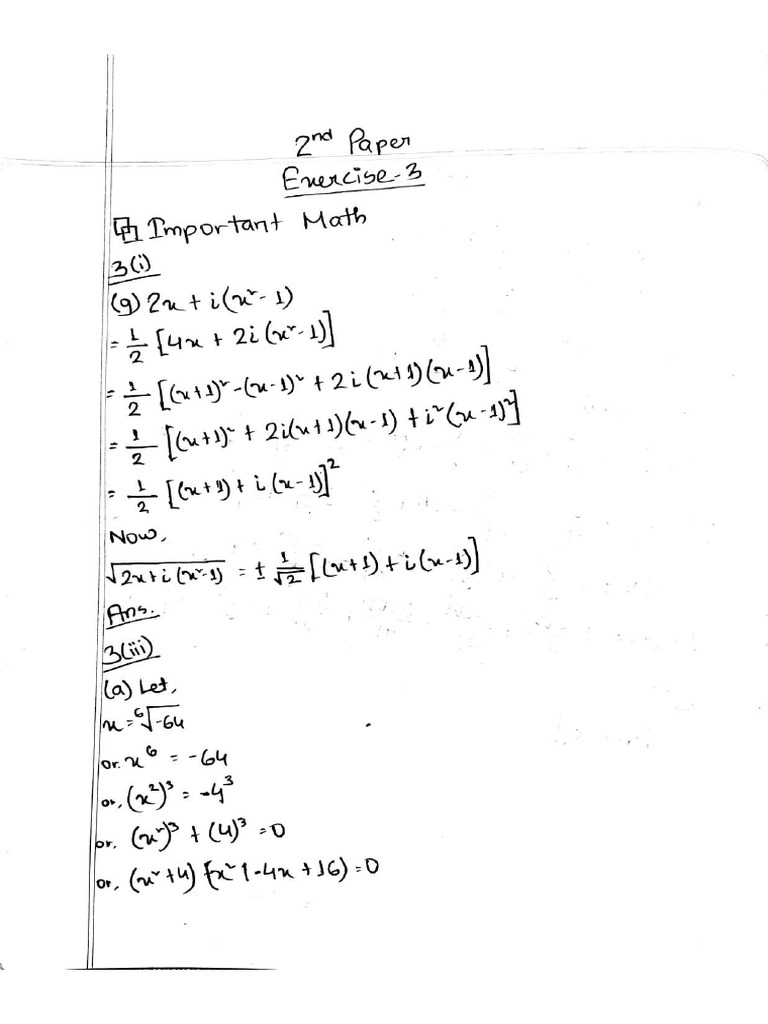 2nd Paper
Exercise-3
Important Math
3(i)
(g) 2x + i(x² - 1)
= 1/2 [4x + 2i(x² - 1)]
= 1/2 [(x+1)² - (x-1)² + 2i(x+1)(x-1)]
= 1/2 [(x+1)² + 2i(x+1)(x-1) + i²(x-1)²]
= 1/2 [(x+1) + i(x-1)]²
Now,
√(2x+i(x²-1)) = ± 1/√2 [(x+1) + i(x-1)]
Ans.
3(iii)
(a) Let,
x = ⁶√-64
or. x⁶ = -64
or, (x²)³ = -4³
or. (x²)³ + (4)³ = 0
or, (x²+4) (x² - 4x + 16) = 0